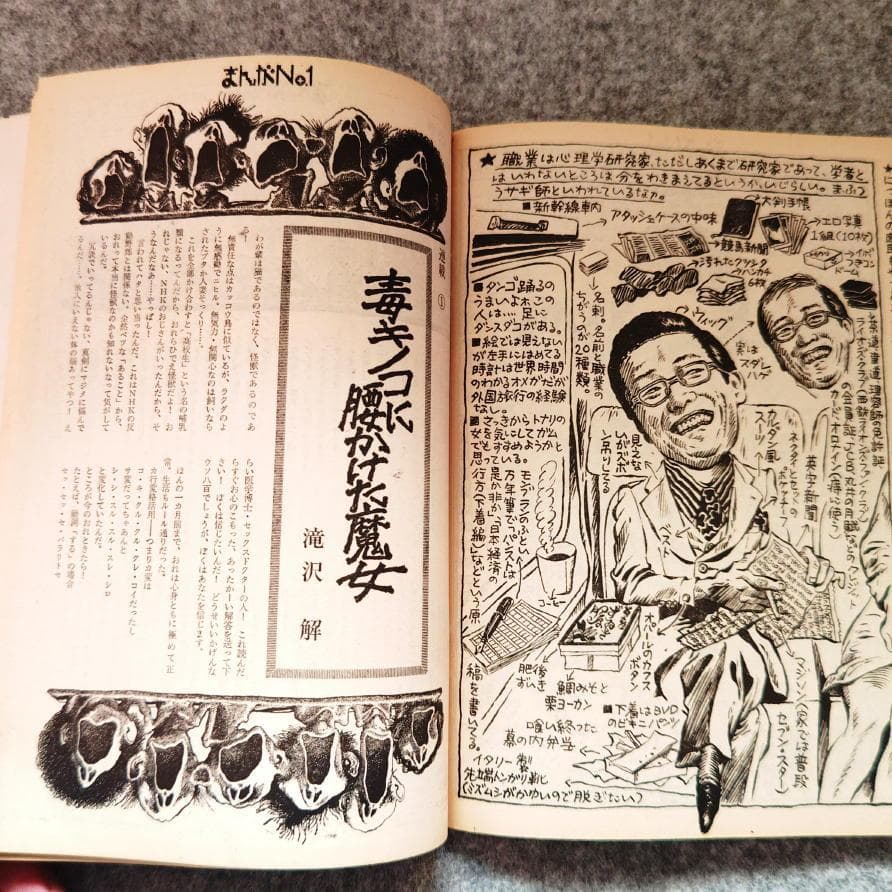 まんがNo.1
連載①
毒キノコに
腰かけた魔女
滝沢 解
わが輩は猫であるのではなく、怪獣であるのであ
る!
無責任な点はカッコウ鳥に似ているが、ラクダのよ
うに無感動でニヒル、無気力・無関心なのは飼いなら
されたブタか人妻そっくり……。
これを全部かけ合わすと「高校生」という名の哺乳
類になるってんだから、おれらひでえ怪獣だよ! お
れじゃない、NHKのおじさんがいったんだから、そ
うなんだなあ……やっぱし!
言われてハタと思い当ったんだ。これはNHKの反
動野郎とは関係ない、全然ベツな「あること」から、
おれって本当に怪獣なのかも知れないなって気がして
いるんだ。
冗談でいってるんじゃない、真剣にマジメに悩んで
るんだ……。
らい医学博士・セックスドクターの人! これ読んだ
らすぐお心のこもった、あったかーい解答を送って下
さい! ぼくは信じたいんだ! どうせいいかげんな
ウソ八百でしょうが、ぼくはあなたを信じます。
ほんの一カ月前まで、おれは心身ともに極めて正
常、生活もルール通りだった。
カ行変格活用——つまりカ変は
コ・キ・クル・クル・クレ・コイだったし
サ変だってちゃあんと
シ・シ・スル・スル・スレ・シロ
と変化していたんだ。
ところが今のおれときたら!
たとえば、動詞「する」の場合
セッ・セッ・セ・パラリトセ
★職業は心理学研究家、ただしあくまで研究家であって、学者と
はいわないところは分をわきまえてるというか、いじらしい。まふつ
うサギ師といわれているなか。
■新幹線車内
アタッシェケースの中味
大判手帳
エロ写真
1組(10枚)
競馬新聞
汚れたクツシタ
ハンカチ
6枚
イボつき
コンドーム
名刺。名前と職業の
ちがうのが20種類。
■タンゴ踊るの
うまいよホこの
人は……足に
ダンスダコがある。
■絵では見えない
が左手にはめてる
時計は世界時間
のわかるオメガだが
外国旅行の経験
なし。
■さっきからトナリの
女を気にしてガム
でもすすめようかと
思っている。
カツラ
実は
スダレ
ハゲ
見えな
いがズボ
ン吊りしてる
カルダン風
スーツ
ネクタイとセットの
ポケットチーフ
英字新聞
ベスト
モンブランのふといー
万年筆で「パンストは
是か非か「日本経済の
行方(下着編)」などという原
稿を書いてる。
コーヒー
肥後
ずいき
鯛みそと
栗ヨーカン
オパールのカフス
ボタン
■下着はBVD
のビキニパンツ
喰い終った
幕の内弁当
イタリー製
先端トンガリ靴
(ミズムシがかゆいので脱ぎたい)
セブン・スター)